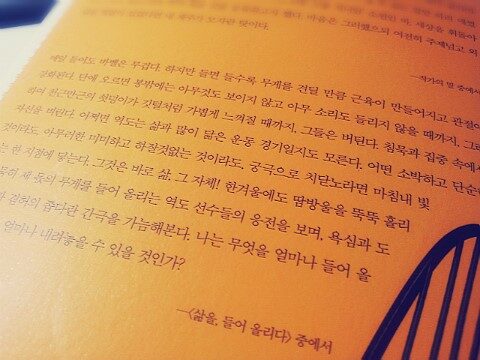 매일 들어도 바벨은 무겁다. 하지만 들면 들수록 무게를 견딜 만큼 근육이 만들어지고 관절이
강화된다. 담에 오르면 봉밖에는 아무것도 보이지 않고 아무 소리도 들리지 않을 때까지, 그리
하여 천근만근의 쇳덩이가 깃털처럼 가볍게 느껴질 때까지, 그들은 버틴다. 침묵과 집중 속에서
자신을 버린다. 어쩌면 역도는 삶과 많이 닮은 운동 경기일지도 모른다. 어떤 소박하고 단순한
것이라도, 아무러한 미미하고 하찮것없는 것이라도, 궁극으로 치닫노라면 마침내 빛
는 한 지점에 닿는다. 그것은 바로 삶, 그 자체! 한겨울에도 땀방울을 뚝뚝 흘리
제 몫의 무게를 들어 올리는 역도 선수들의 응전을 보며, 욕심과 도
겸허의 좁다란 간극을 가늠해본다. 나는 무엇을 얼마나 들어 올
얼마나 내려놓을 수 있을 것인가?
—<삶을, 들어 올리다> 중에서